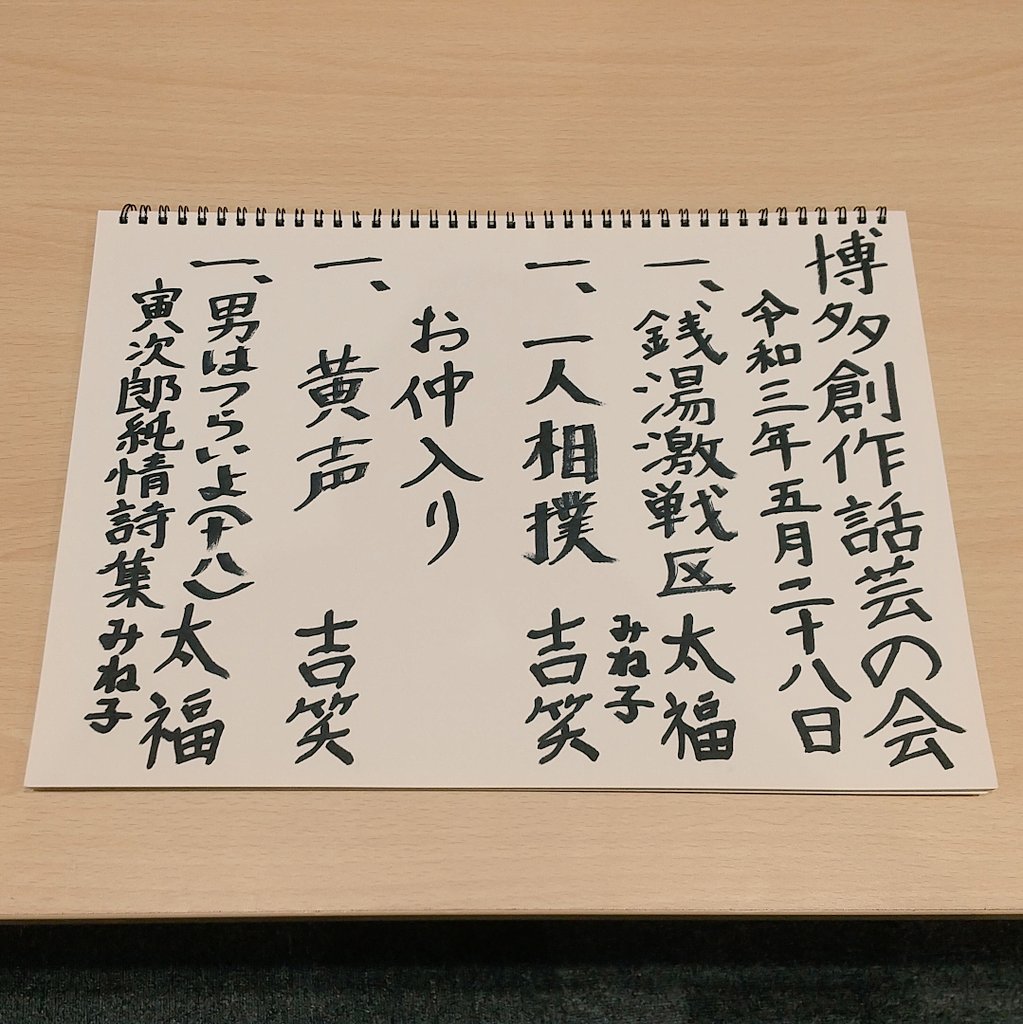 博多創作話芸の会
令和三年五月二十八日
一、銭湯激戦区 太福
みね子
一、一人相撲 吉笑
お仲入り
一、黄声 吉笑
一、男はつらいよ(十八) 太福
寅次郎純情詩集 みね子